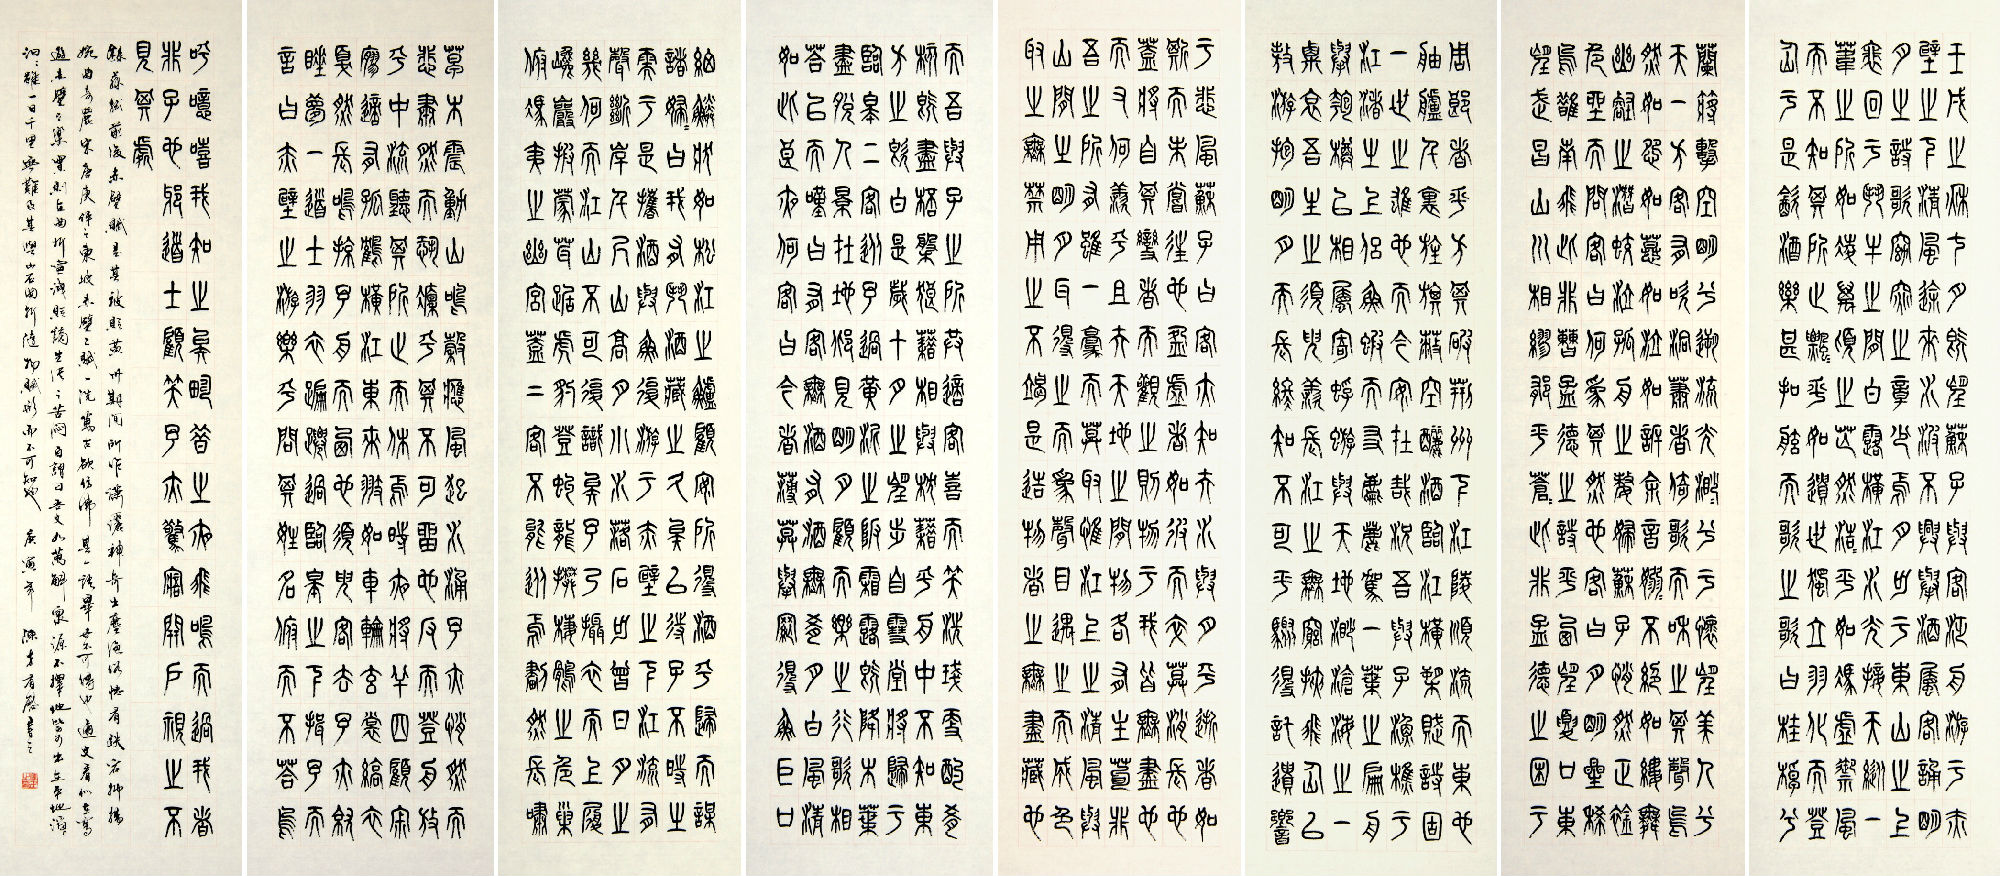 壬戌之秋七月既望蘇子與客泛舟游于赤
壁之下清風徐來水波不興舉酒屬客誦明
月之詩歌窈窕之章少焉月出于東山之上
裴回于斗牛之間白露橫江水光接天縱一
葦之所如凌萬頃之茫然浩=乎如馮虛禦風
而不知其所止飄=乎如遺世獨立羽化而登
仙于是飲酒樂甚扣舷而歌之歌曰桂棹兮
蘭槳擊空明兮溯流光渺=兮于懷望美人兮
天一方客有吹洞簫者倚歌而和之其聲烏=
然如怨如慕如泣如訴余音嫋=不絕如縷舞
幽壑之潛蛟泣孤舟之嫠婦蘇子愀然正襟
危坐而問客曰何為其然也客曰月明星稀
烏鵲南飛此非曹孟德之詩乎西望夏口東
望武昌山川相繆鬱乎蒼=此非孟德之困于
周郎者乎方其破荊州下江陵順流而東也
舳艫千里旌旗蔽空釃酒臨江橫槊賦詩固
一世之雄也而今安在哉況吾與子漁樵于
江渚之上侶魚蝦而友麋鹿駕一葉之扁舟
舉匏樽以相屬寄蜉蝣與天地渺滄海之一
粟哀吾生之須臾羨長江之無窮挾飛仙以
敖游抱明月而長終知不可乎驟得託遺響
于悲風蘇子曰客亦知夫水與月乎逝者如
斯而未嘗往也盈虛者如彼而卒莫消長也
蓋將自其變者而觀之則物于我皆無盡也
而又何羨乎且夫天地之間物各有主苟非
吾之所有雖一毫而莫取惟江上之清風與
山間之明月耳得之而為聲目遇之而成色
取之無禁用之不竭是造物者之無盡藏也
而吾與子之所共適客喜而笑洗盞更酌肴
核既盡杯盤狼藉相與枕藉乎舟中不知東
方之既白是歲十月之望步自雪堂將歸于
臨皋二客從予過黃泥之阪霜露既降木葉
盡脫人景在地仰見明月顧而樂之行歌相
答已而嘆曰有客無酒有酒無肴月白風清
如此良夜何客曰今者薄莫舉网得魚巨口
細鱗狀如松江之鱸顧安所得酒乎歸而謀
諸婦=曰我有斗酒藏之久矣以待子不時之
需于是攜酒與魚復游于赤壁之下江流有
聲斷岸千尺山高月小水落石出曾日月之
幾何而江山不可復識矣予乃攝衣而上履
巉巖披蒙茸踞虎豹登虬龍攀棲鶻之危巢
俯馮夷之幽宮蓋二客不能從焉劃然長嘯
草木震動山鳴谷應風起水涌予亦悄然而
悲肅然而恐凜乎其不可留也反而登舟放
乎中流聽其所止而休焉時夜將半四顧寂
寥適有孤鶴橫江東來翅如車輪玄裳縞衣
戛然長鳴掠予舟而西也須臾客去予亦就
睡夢一道士羽衣蹁躚過臨皋之下揖予而
言曰赤壁之游樂乎問其姓名俯而不答烏
呼噫嘻我知之矣疇昔之夜飛鳴而過我者
非子也邪道士顧笑予亦驚寤開戶視之不
見其處
前後赤壁賦是其被貶黃州期間所作
宋唐庚 東坡赤壁二賦一洗萬古欲仿佛其一語畢世不可得也
自謂曰吾文如萬斛泉源不擇地皆可出在平地滔
汩=雖一日千里無難及其與山石曲折隨物賦形而不可知也 庚寅年